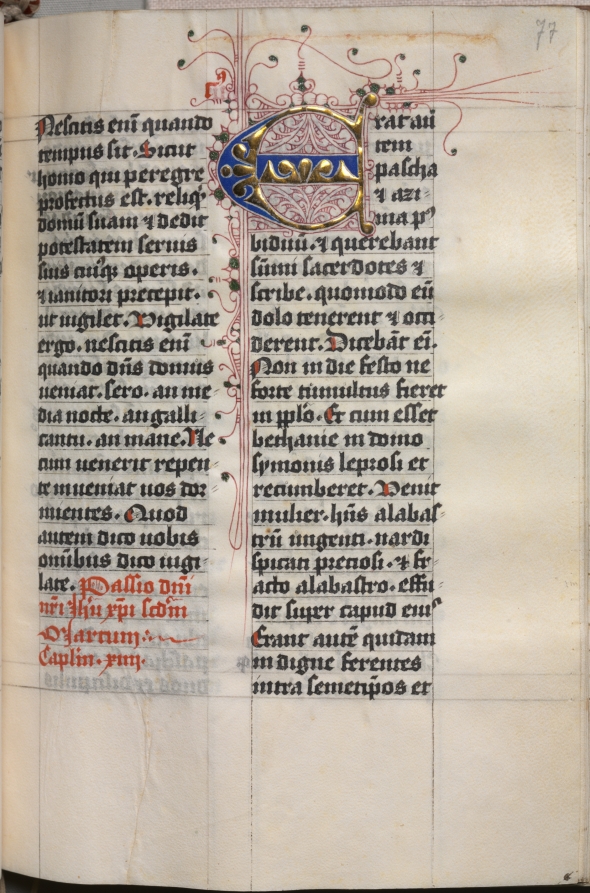 77
Nescitis eni quando
tempus sit. Sicut
homo qui peregre
profectus est. reliq
domu suam ⁊ dedit
potestatem seruis
suis cuiꝰqꝫ operis.
⁊ ianitori precepit.
ut uigilet. Vigilate
ergo. nescitis eni
quando dns domus
ueniat. sero. an me-
dia nocte. an galli-
cantu. an mane. Ne
cum uenerit repen-
te inueniat uos dor-
mientes. Quod
autem dico uobis
omibus dico uigi-
late. Passio dni
nri ihu xpi scdm
Marcum.
Caplm. xiiij.
Erat aut
tem
pascha
⁊ azi-
ma pꝰ
biduu. ⁊ querebant
sumi sacerdotes ⁊
scribe. quomodo eu
dolo tenerent ⁊ occi
derent. Dicebat ei.
Non in die festo ne
forte tumultus fieret
in pplo. Et cum esset
bethanie in domo
symonis leprosi et
recumberet. Venit
mulier. hns alabas-
tru ungenti. nardi
spicati preciosi. ⁊ fr-
acto alabastro. effu-
dit super capud eiuꝰ
Erant aute quidam
indigne ferentes
intra semetipos et